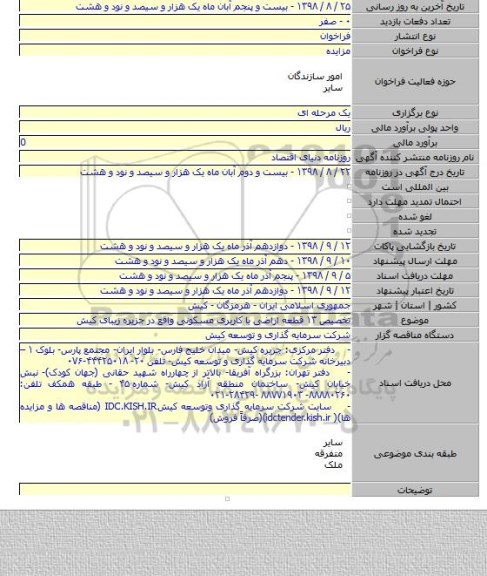 تاریخ آخرین به روز رسانی ۲۵ / ۸ / ۱۳۹۸ - بیست و پنجم آبان ماه یک هزار و سیصد و نود و هشت
تعداد دفعات بازدید ۰ - صفر
نوع انتشار فراخوان
نوع فراخوان مزایده
حوزه فعالیت فراخوان امور سازندگان
سایر
نوع برگزاری یک مرحله ای
واحد پولی برآورد مالی ریال
برآورد مالی 0
نام روزنامه منتشر کننده آگهی روزنامه دنیای اقتصاد
تاریخ درج آگهی در روزنامه ۲۲ / ۸ / ۱۳۹۸ - بیست و دوم آبان ماه یک هزار و سیصد و نود و هشت
بین المللی است
احتمال تمدید مهلت دارد
لغو شده
تجدید شده
تاریخ بازگشایی پاکات ۱۲ / ۹ / ۱۳۹۸ - دوازدهم آذر ماه یک هزار و سیصد و نود و هشت
مهلت ارسال پیشنهاد ۱۰ / ۹ / ۱۳۹۸ - دهم آذر ماه یک هزار و سیصد و نود و هشت
مهلت دریافت اسناد ۵ / ۹ / ۱۳۹۸ - پنجم آذر ماه یک هزار و سیصد و نود و هشت
تاریخ اعتبار پیشنهاد ۱۲ / ۹ / ۱۳۹۸ - دوازدهم آذر ماه یک هزار و سیصد و نود و هشت
کشور | استان | شهر جمهوری اسلامی ایران - هرمزگان - کیش
موضوع تخصیص ۱۳ قطعه اراضی با کاربری مسکونی واقع در جزیره زیبای کیش
دستگاه مناقصه گزار شرکت سرمایه گذاری و توسعه کیش
محل دریافت اسناد - دفتر مرکزی: جزیره کیش- میدان خلیج فارس- بلوار ایران- مجتمع پارس- بلوک ۱ –
دبیرخانه شرکت سرمایه گذاری و توسعه کیش- تلفن ۲۰-۴۴۴۲۵۰۱۸-۰۷۶
- دفتر تهران: بزرگراه آفریقا- بالاتر از چهارراه شهید حقانی (جهان کودک)- نبش
خیابان کیش- ساختمان منطقه آزاد کیش- شماره ۴۵ - طبقه همکف تلفن:
۸۸۸۸۰۲۶۰-۸۸۷۷۱۹۰۳-۰۲۱-۲۸۴۲۹
- سایت شرکت سرمایه گذاری وتوسعه کیش IDC.KISH.IR (مناقصه ها و مزایده
ها)( idctender.kish.ir)(صرفاً فروش)
طبقه بندی موضوعی سایر
متفرقه
ملک
توضیحات